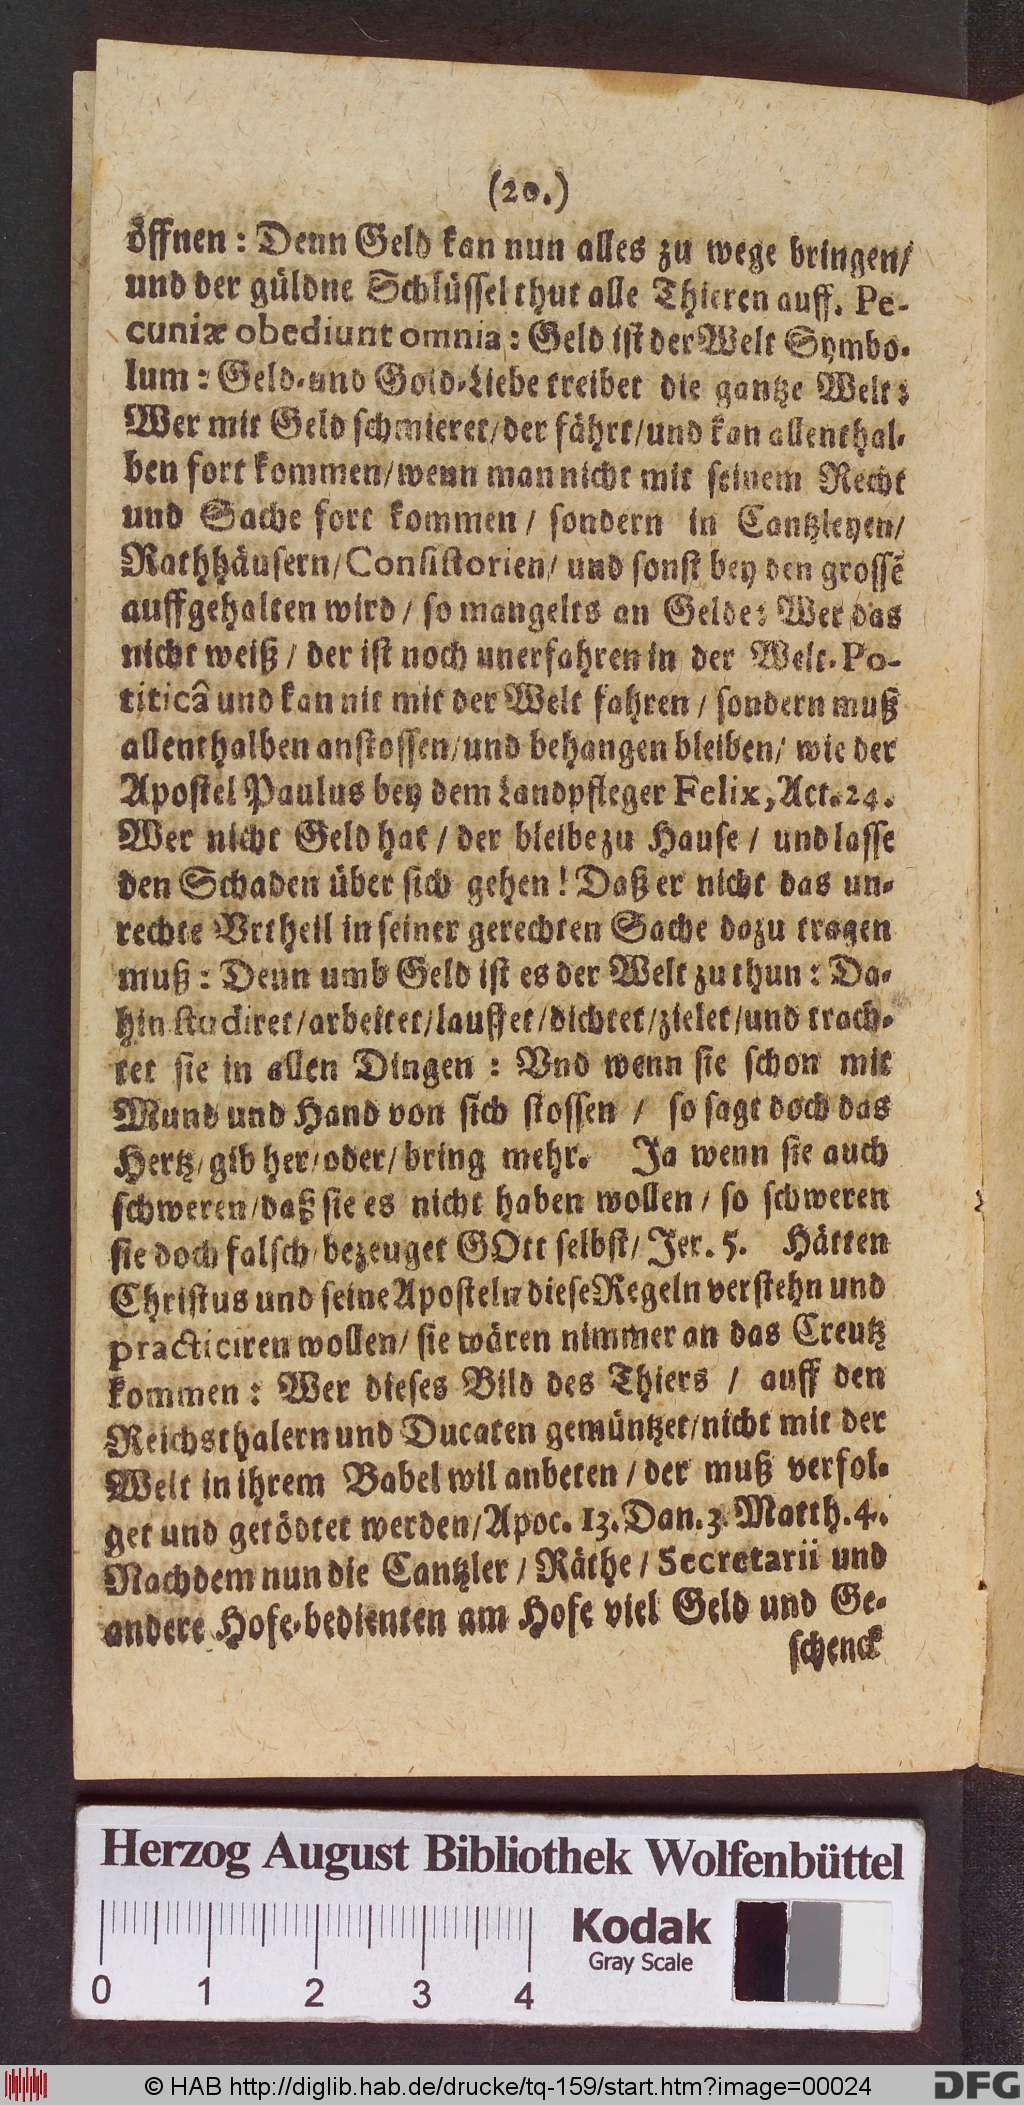 (20.)
öffnen: Denn Geld kan nun alles zu wege bringen/
und der güldne Schlüssel thut alle Thieren auff. Pe-
cuniæ obediunt omnia: Geld ist der Welt Symbo-
lum: Geld- und Gold-Liebe treibet die gantze Welt:
Wer mit Geld schmieret/der fährt/und kan allenthal-
ben fort kommen/wenn man nicht mit seinem Recht
und Sache fort kommen/ sondern in Cantzleyen/
Rathhäusern/Consistorien/ und sonst bey den grossẽ
auffgehalten wird/ so mangelts an Gelde: Wer das
nicht weiß/ der ist noch unerfahren in der Welt-Po-
titicâ und kan nit mit der Welt fahren/ sondern muß
allenthalben anstossen/und behangen bleiben/ wie der
Apostel Paulus bey dem Landpfleger Felix, Act. 24.
Wer nicht Geld hat/ der bleibe zu Hause/ und lasse
den Schaden über sich gehen! Daß er nicht das un-
rechte Vrtheil in seiner gerechten Sache dazu tragen
muß: Denn umb Geld ist es der Welt zu thun: Da-
hin studiret/arbeitet/lauffet/dichtet/zielet/und trach-
tet sie in allen Dingen: Vnd wenn sie schon mit
Mund und Hand von sich stossen/ so sagt doch das
Hertz/gib her/oder/bring mehr. Ja wenn sie auch
schweren/daß sie es nicht haben wollen/ so schweren
sie doch falsch/bezeuget GOtt selbst/ Jer. 5. Hätten
Christus und seine Aposteln diese Regeln verstehn und
practiciren wollen/ sie wären nimmer an das Creutz
kommen: Wer dieses Bild des Thiers/ auff den
Reichsthalern und Ducaten gemüntzet/nicht mit der
Welt in ihrem Babel wil anbeten/der muß verfol-
get und getödtet werden/Apoc. 13. Dan. 3. Matth. 4.
Nachdem nun die Cantzler/ Räthe/ Secretarii und
andere Hofe-bedienten am Hofe viel Geld und Ge-
schenck
Herzog August Bibliothek Wolfenbüttel
Kodak
Gray Scale
0 1 2 3 4
© HAB http://diglib.hab.de/drucke/tq-159/start.htm?image=00024
DFG